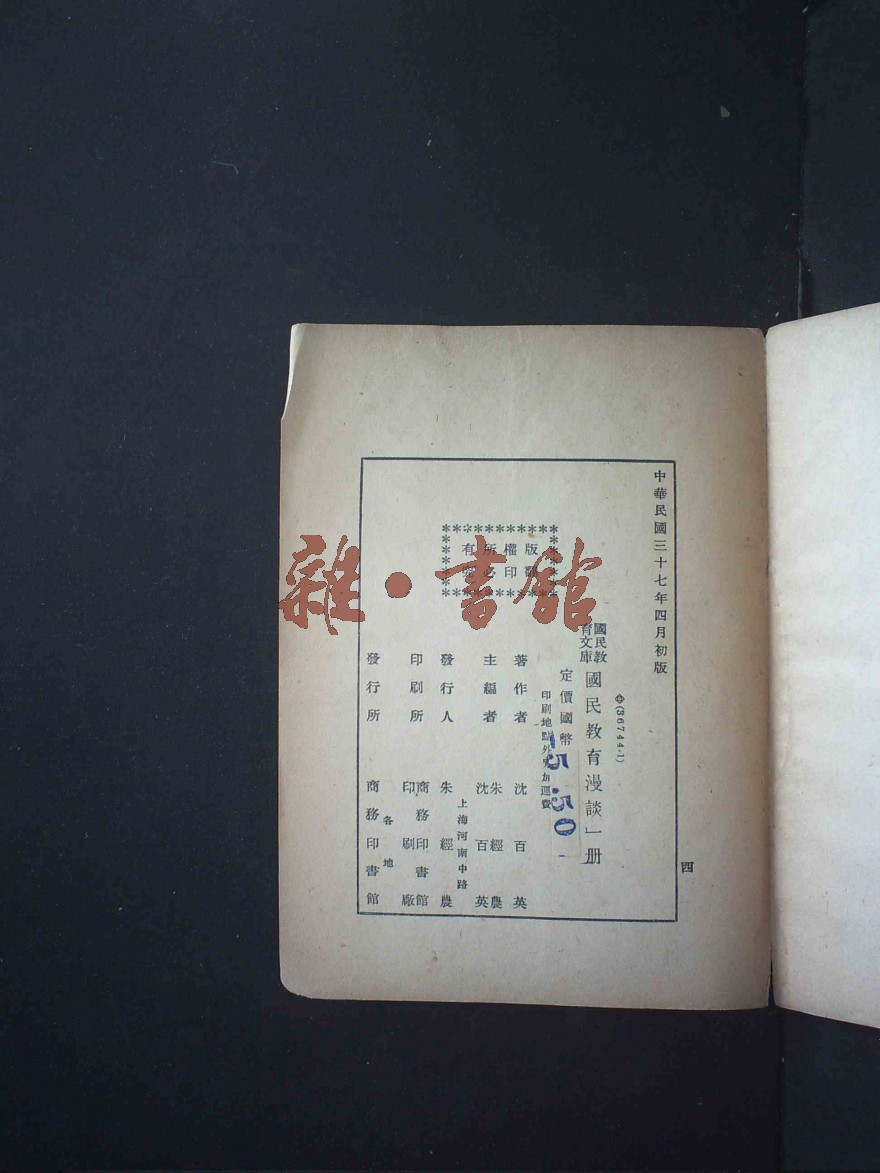 中華民國三十七年四月初版
四
㊥(36744·1)
國民教
育文庫
國民教育漫談一册
定價國幣
5.50
印刷地點外另加運費
版權所有
翻印必究
著作者 沈百英
主編者 朱經農
沈百英
上海河南中路
發行人 朱經農
印刷所 商務印書館
印刷廠
各地
發行所 商務印書館
雜·書館